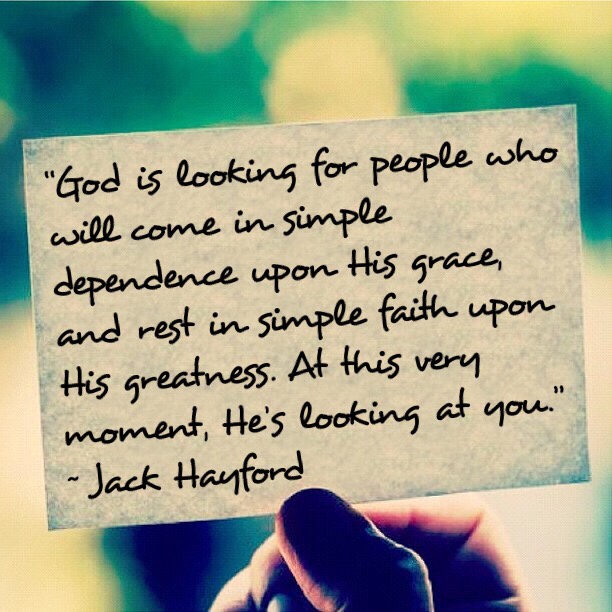 "God is looking for people who
will come in simple
dependence upon His grace,
and rest in simple faith upon
His greatness. At this very
moment, He's looking at you."
~ Jack Hayford